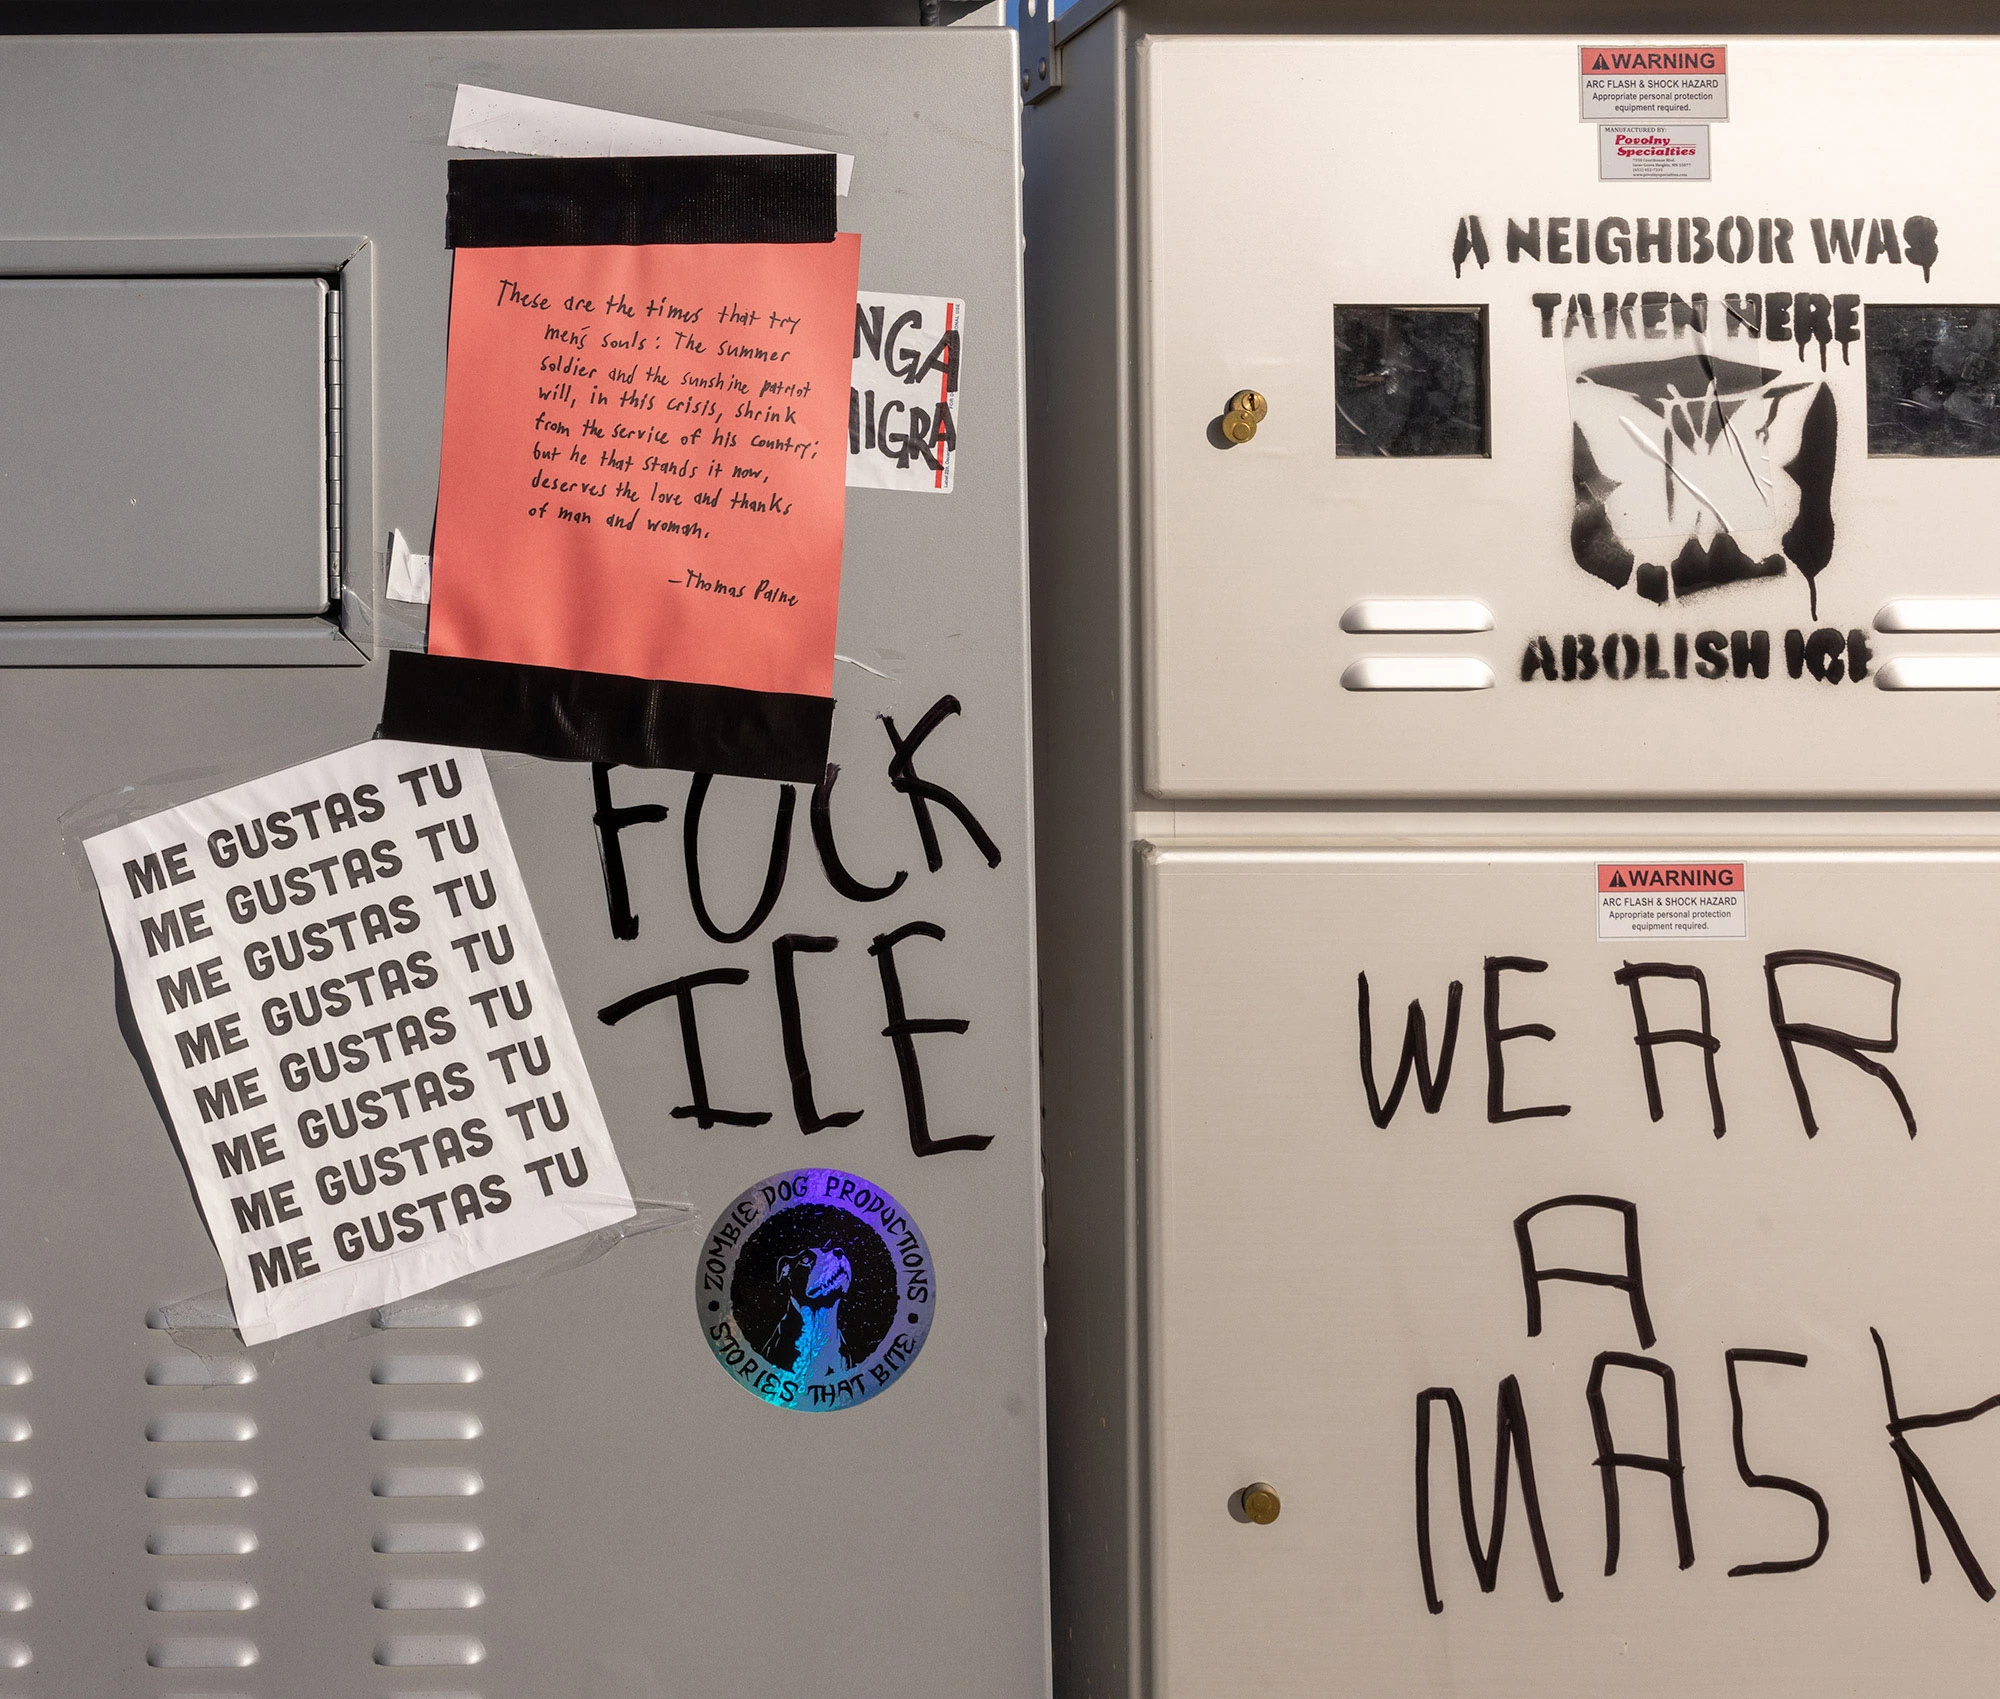 These are the times that try
men's souls: The summer
soldier and the sunshine patriot
will, in this crisis, shrink
from the service of his country;
but he that stands it now,
deserves the love and thanks
of man and woman.
—Thomas Paine
NGA
MIGRA
FUCK
ICE
ME GUSTAS TU
ME GUSTAS TU
ME GUSTAS TU
ME GUSTAS TU
ME GUSTAS TU
ME GUSTAS TU
ME GUSTAS TU
ME GUSTAS TU
ZOMBIE DOG PRODUCTIONS
STORIES THAT BITE
WARNING
ARC FLASH & SHOCK HAZARD
Appropriate personal protection
equipment required.
MANUFACTURED BY:
Povolny
Specialties
A NEIGHBOR WAS
TAKEN HERE
ABOLISH ICE
WARNING
ARC FLASH & SHOCK HAZARD
Appropriate personal protection
equipment required.
WEAR
A
MASK